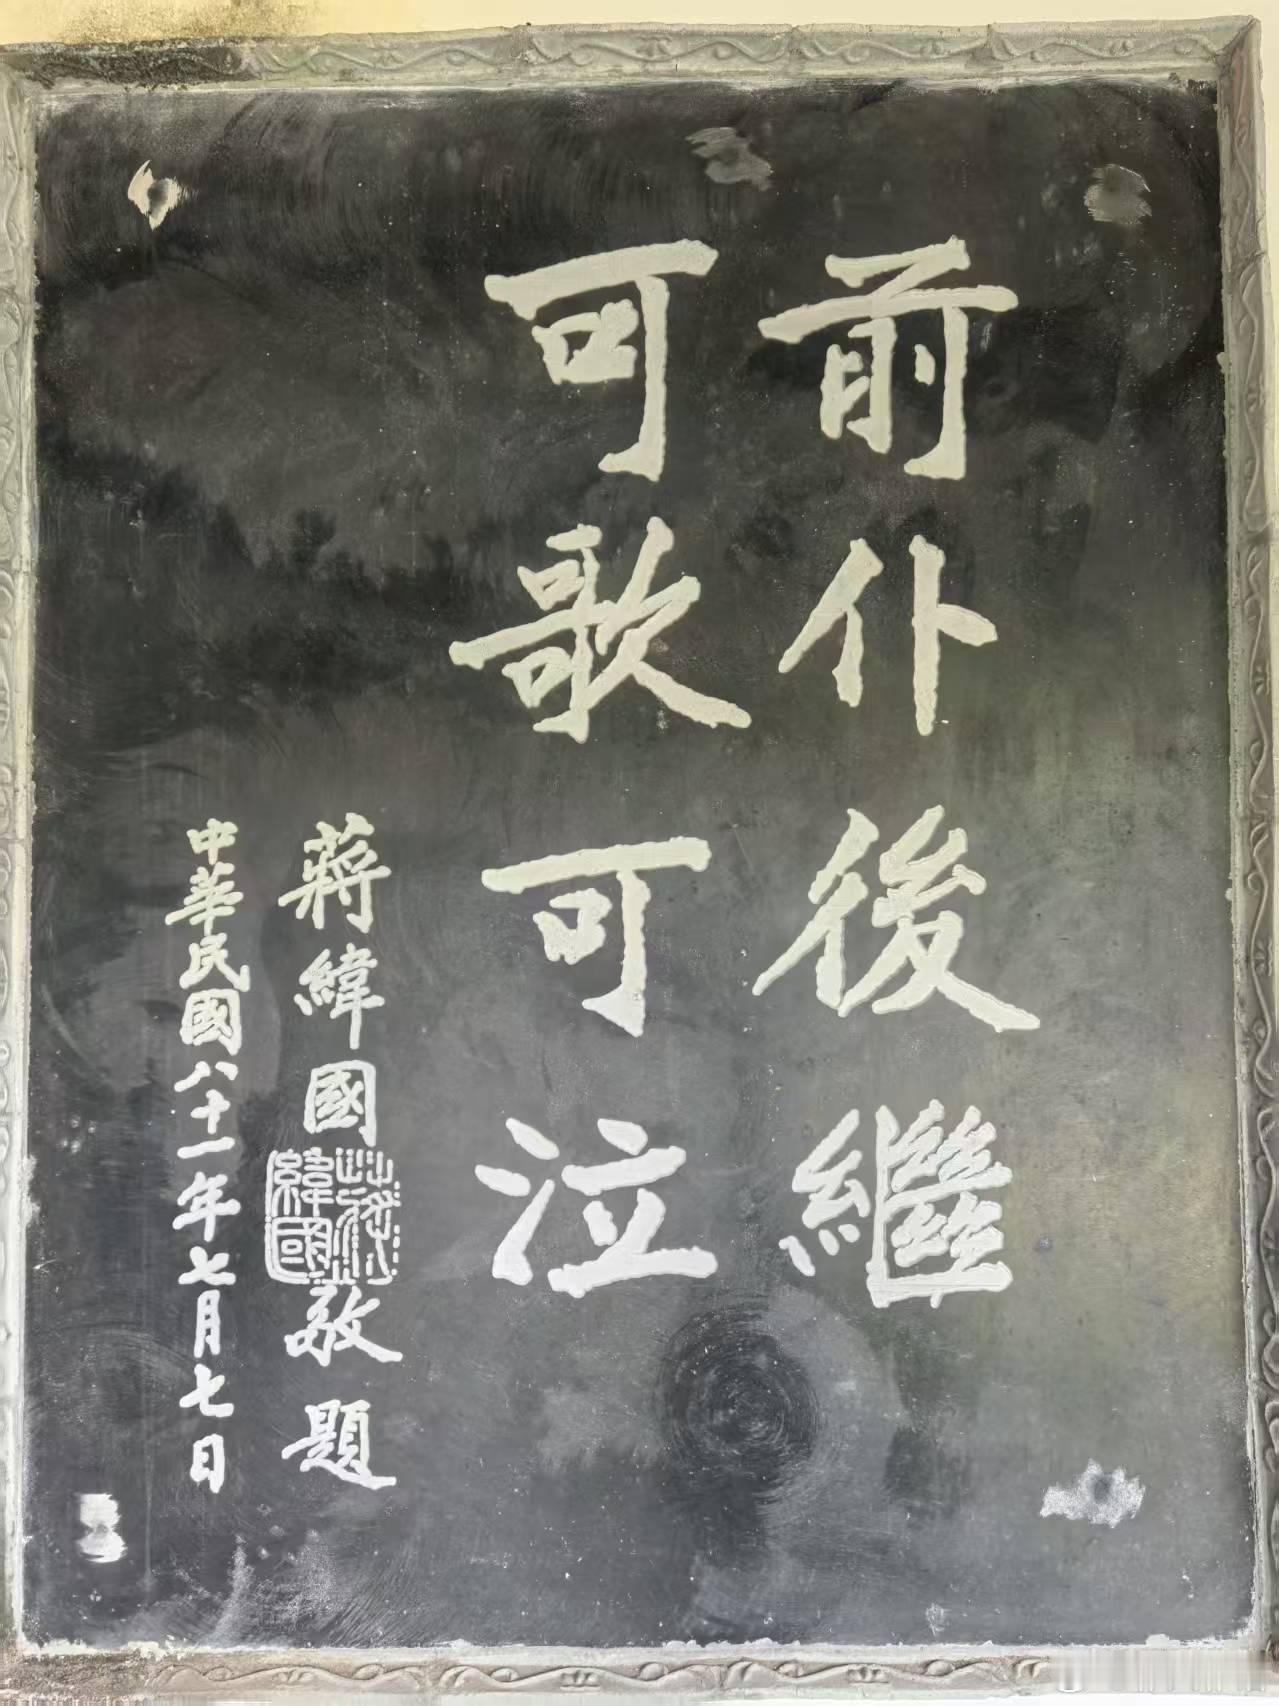 前仆後繼
可歌可泣
蔣緯國敬題
蔣緯國
中華民國八十一年七月七日